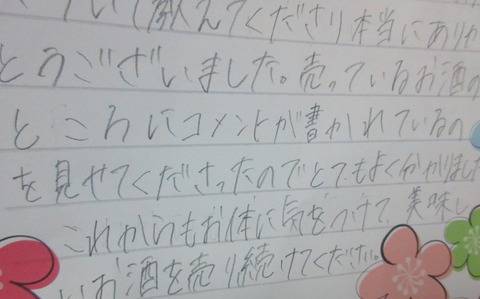 ついて教えてくださり本当にありが
とうございました。売っているお酒の
ところにコメントが書かれているの
を見せてくださったのでとてもよく分かりました
これからもお体に気をつけて、美味し
いお酒を売り続けてください。